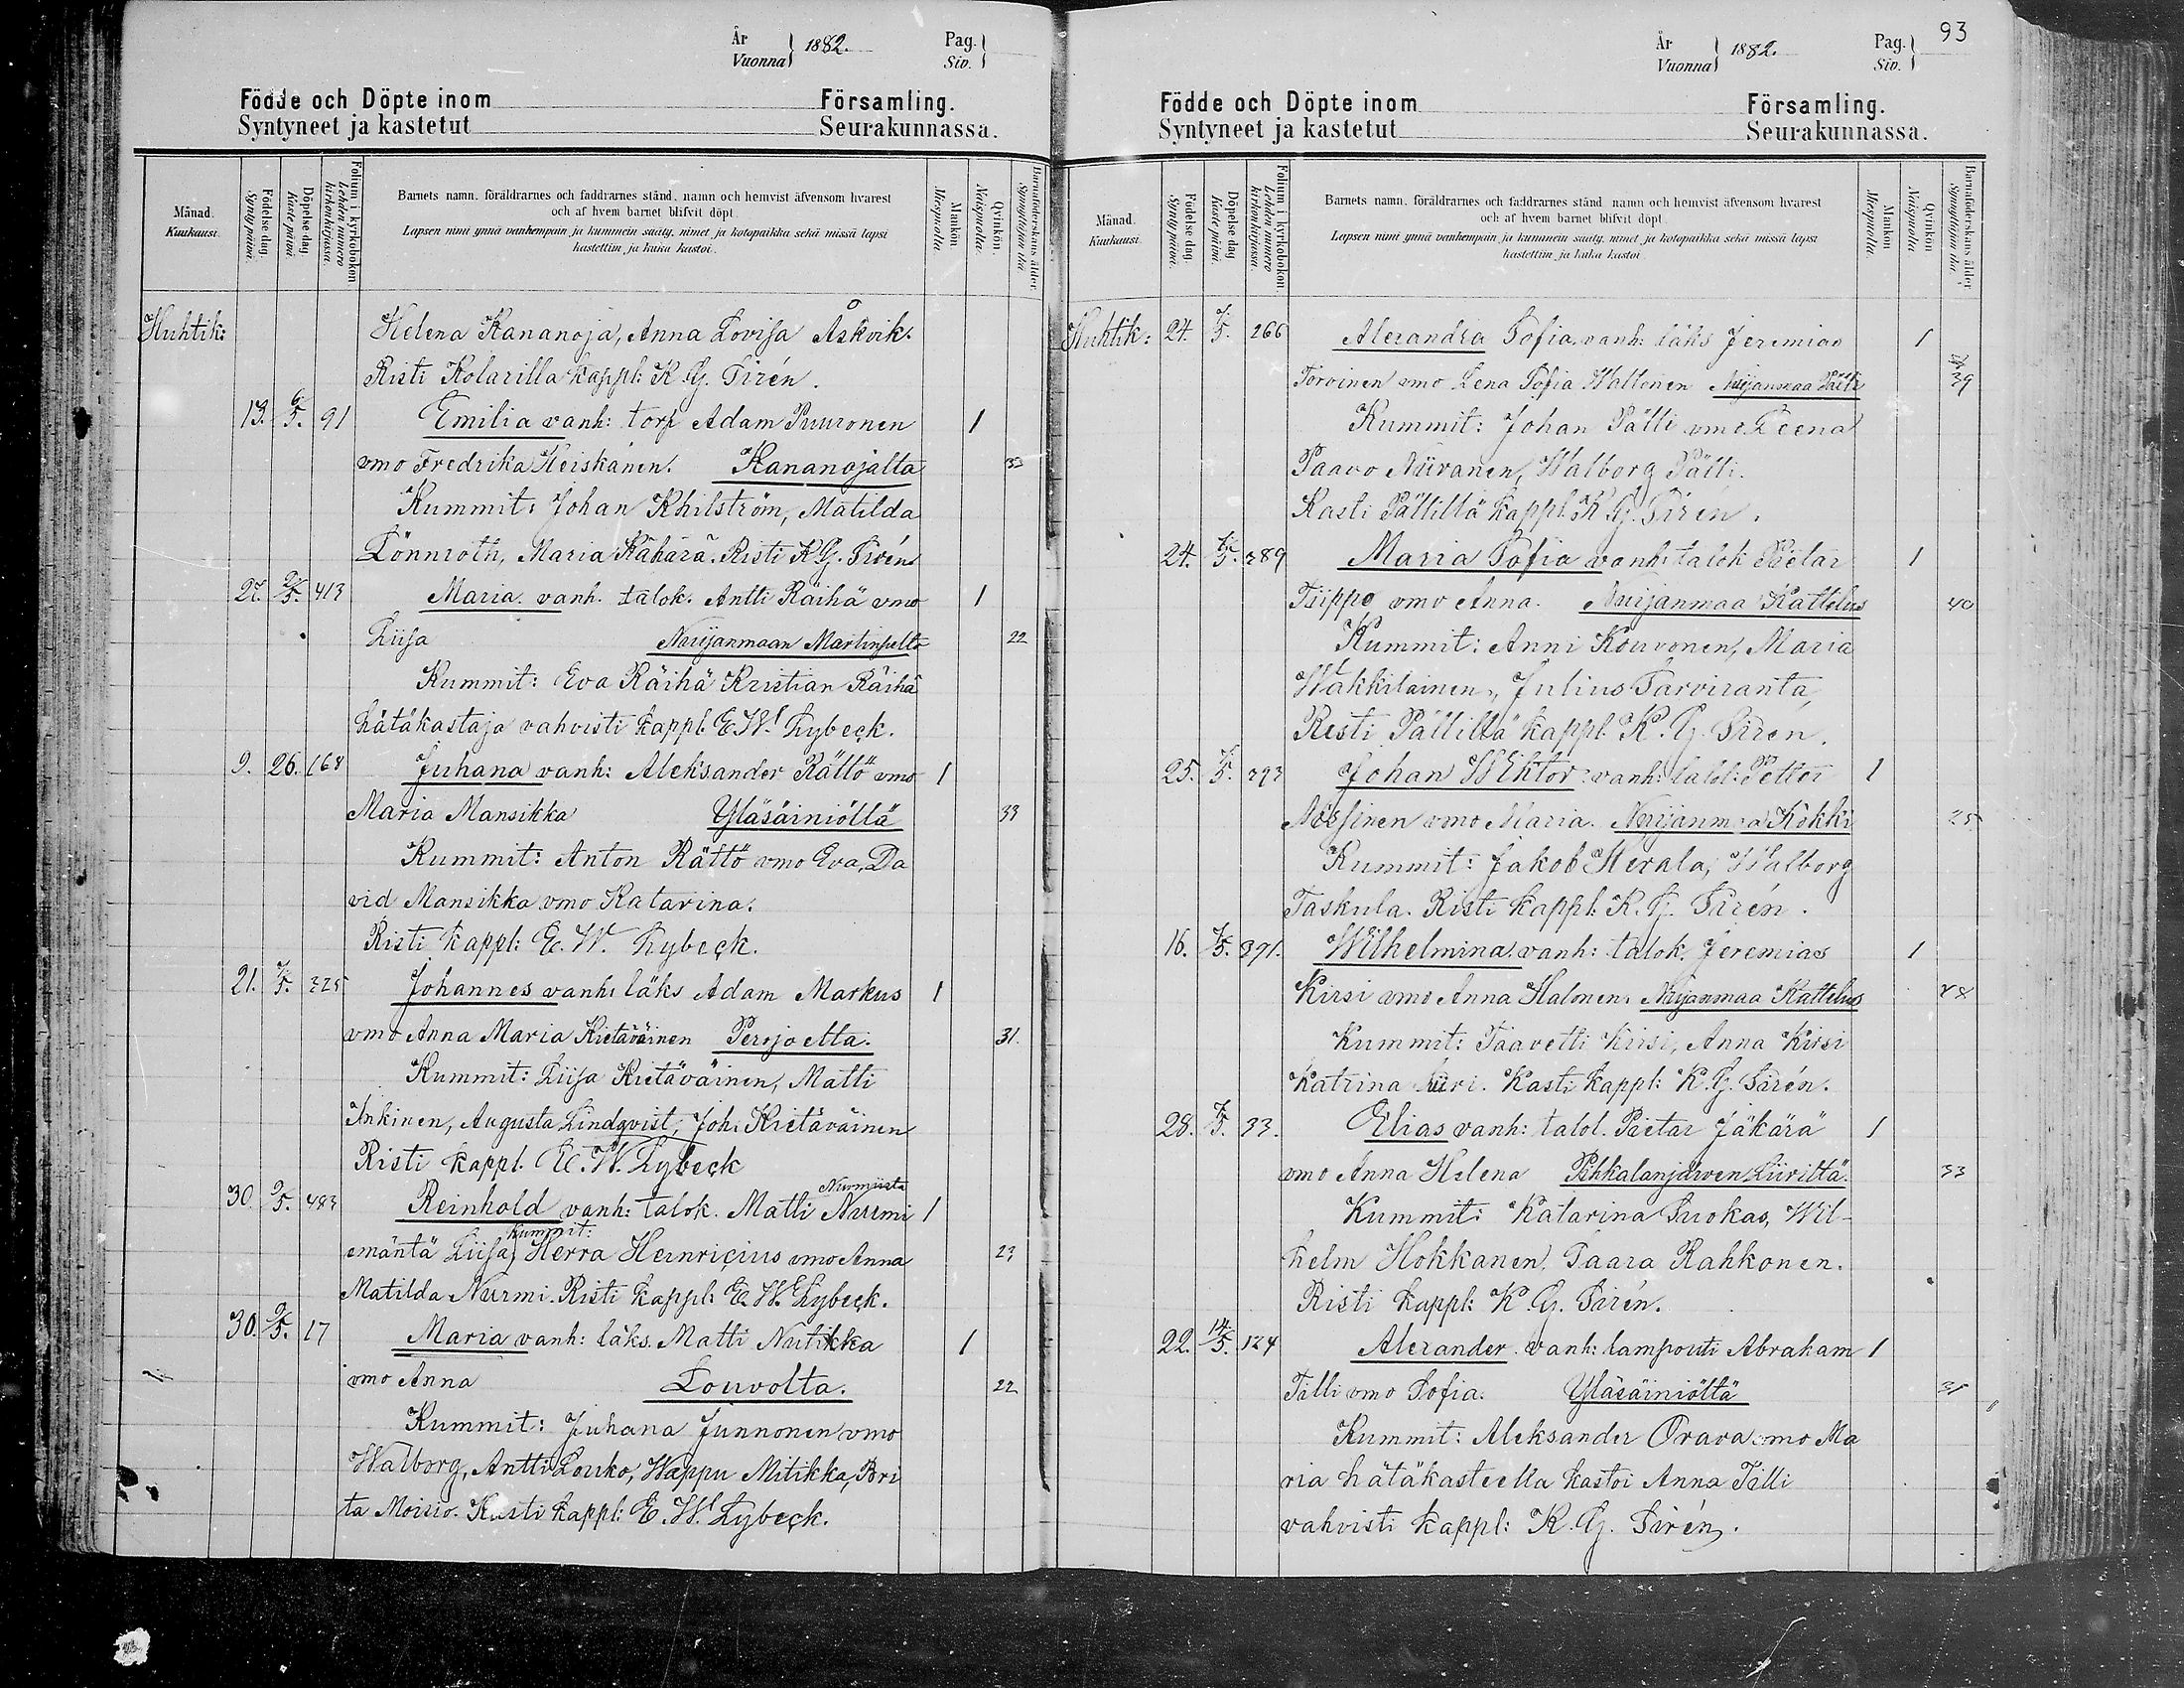 År
Vuonna 1882. Pag.
Siv.
Födde och Döpte inom Församling.
Syntyneet ja kastetut Seurakunnassa.
Månad.
Kuukausi.
Födelse dag.
Syntypäivä.
Döpelse dag.
Kastepäivä.
Folium i kyrkobokon
Lehden numero
kirkonkirjassa.
Barnets namn, föräldrarnes och faddrarnes stånd, namn och hemvist äfvensom hvarest
och af hvem barnet blifvit döpt.
Lapsen nimi ynnä vanhempain ja kummein sääty, nimet ja kotopaikka sekä missä lapsi
kastettiin ja kuka kastoi.
Mankön.
Miespuolta.
Qvinkön.
Naispuolta.
Barnaföderskans ålder.
Synnyttäjän ikä.
Huhtik: Helena Kananoja, Anna Lovisa Åskvik.
Risti Kolarilla kappl: K. G. Sirén.
13. 6/5. 91 Emilia vanh: torp Adam Puuronen 1
vmo Fredrika Heiskanen. Kananojalta 33
Kummit: Johan Khilström, Matilda
Lönnroth, Maria Kähärä. Risti K G. Sirén
27. /5. 413 Maria. vanh. talok. Antti Räihä vmo 1
Liisa Nuijanmaan Martinpelto 22
Kummit: Eva Räihä Kristian Räihä
hätäkastaja vahvisti kappl. E. W. Lybeck.
9. 26. 168 Juhana vanh: Aleksander Rättö vmo 1
Maria Mansikka Yläsäiniöltä 33
Kummit: Anton Rättö vmo Eva, Da
vid Mansikka vmo Katarina.
Risti kappl: E. W. Lybeck.
21. 7/5. 325 Johannes vanh: läks Adam Markus 1
vmo Anna Maria Kietäväinen Perojoelta. 31.
Kummit: Liisa Kietäväinen, Matti
Inkinen, Augusta Lindqvist, Joh. Kietäväinen
Risti kappl. E. W. Lybeck
Nurmiista
30. 9/5. 483 Reinhold vanh: talok. Matti Nurmi 1
Kummit:
emäntä Liisa, Herra Heinricius vmo Anna 23
Matilda Nurmi. Risti kappl: E. W. Lybeck.
30. 9/5. 17 Maria vanh: läks. Matti Nutikka 1
vmo Anna Louvolta. 22
Kummit: Juhana Junnonen vmo
Walborg, Antti Louko, Wappu Mitikka, Bri
ta Moisio. Kasti kappl: E. W. Lybeck.
93
År
Vuonna 1882. Pag.
Siv.
Födde och Döpte inom Församling.
Syntyneet ja kastetut Seurakunnassa.
Månad.
Kuukausi.
Födelse dag.
Syntypäivä.
Döpelse dag.
Kastepäivä.
Folium i kyrkobokon.
Lehden numero
kirkonkirjassa.
Barnets namn, föräldrarnes och faddrarnes stånd, namn och hemvist äfvensom hvarest
och af hvem barnet blifvit döpt.
Lapsen nimi ynnä vanhempain ja kummein sääty, nimet ja kotopaikka sekä missä lapsi
kastettiin ja kuka kastoi
Mankön
Miespuolta.
Qvinkön
Naispuolta.
Barnaföderskans ålder
Synnyttäjän ikä.
Huhtik: 24. 7/5. 266 Alexandra Sofia. vanh: läks Jeremias 1
Torvinen vmo Lena Sofia Waltonen Nuijanmaa Pälti 39
Kummit: Johan Pälli vmo Leena
Paavo Niiranen, Walborg Pälli.
Kasti Pällillä kappl: K. G. Sirén.
24. 7/5. 389 Maria Sofia vanh: talok Pietar 1
Tiippo vmo Anna. Nuijanmaa Kattelus 40
Kummit: Anni Kouvonen, Maria
Wakkilainen, Julius Tarviranta,
Risti Pällillä kappl. K. G. Siren.
25. 7/5. 393 Johan Wiktor: vanh: talol: Petter 1
Nössinen vmo Maria. Nuijanmaa Kökki 25
Kummit: Jakob Herala, Walborg
Taskula. Risti kappl: K. G. Sirén.
16. 7/5. 391. Wilhelmina. vanh: talok. Jeremias 1
Kirsi vmo Anna Halonen. Nuijanmaa Kattelus 28
Kummit: Taavetti Kirsi, Anna Kirsi
Katrina Suri. Kasti kappl: K. G. Sirén.
28. 7/5. 33. Elias vanh: talol. Pietar Jäkärä 1
vmo Anna Helena Pihkalanjärven Liiviltä. 33
Kummit: Katarina Suokas, Wil-
helm Hokkanen, Saara Rahkonen.
Risti kappl: K. G. Sirén.
22. 14/5. 124 Alexander. vanh: lampouti Abraham 1
Tälli vmo Sofia. Yläsäiniöltä 31
Kummit: Aleksander Orava vmo Ma
ria hätäkasteella kastoi Anna Tälli
vahvisti kappl: K. G. Sirén.